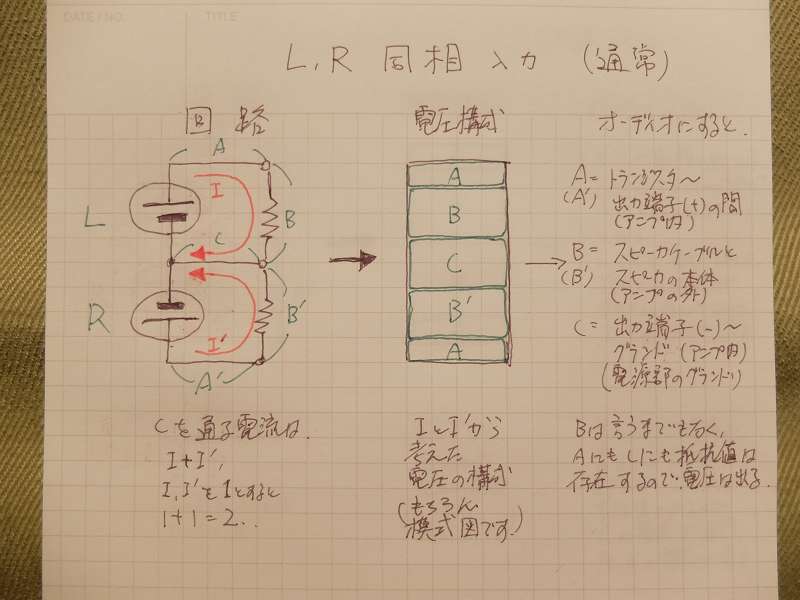 DATE / NO.
TITLE
L, R 同相 入力 (通常)
回路
A
I
L
B
C
R
I'
B'
A'
Cを通る電流は.
I+I',
I, I'を1とすると
1+1=2..
電圧構成
A
B
C
B'
A
IとI'から
考えた
電圧の構成
(もちろん
模式図です!)
オーディオにすると.
A= トランジスタ〜
(A') 出力端子(+)の間
(アンプ内)
B= スピーカケーブルと
(B') スピーカの本体
(アンプの外)
C= 出力端子(-)〜
グランド (アンプ内)
(電源部のグランド)
Bは言うまでもなく,
AにもCにも抵抗値は
存在するので電圧は出る.